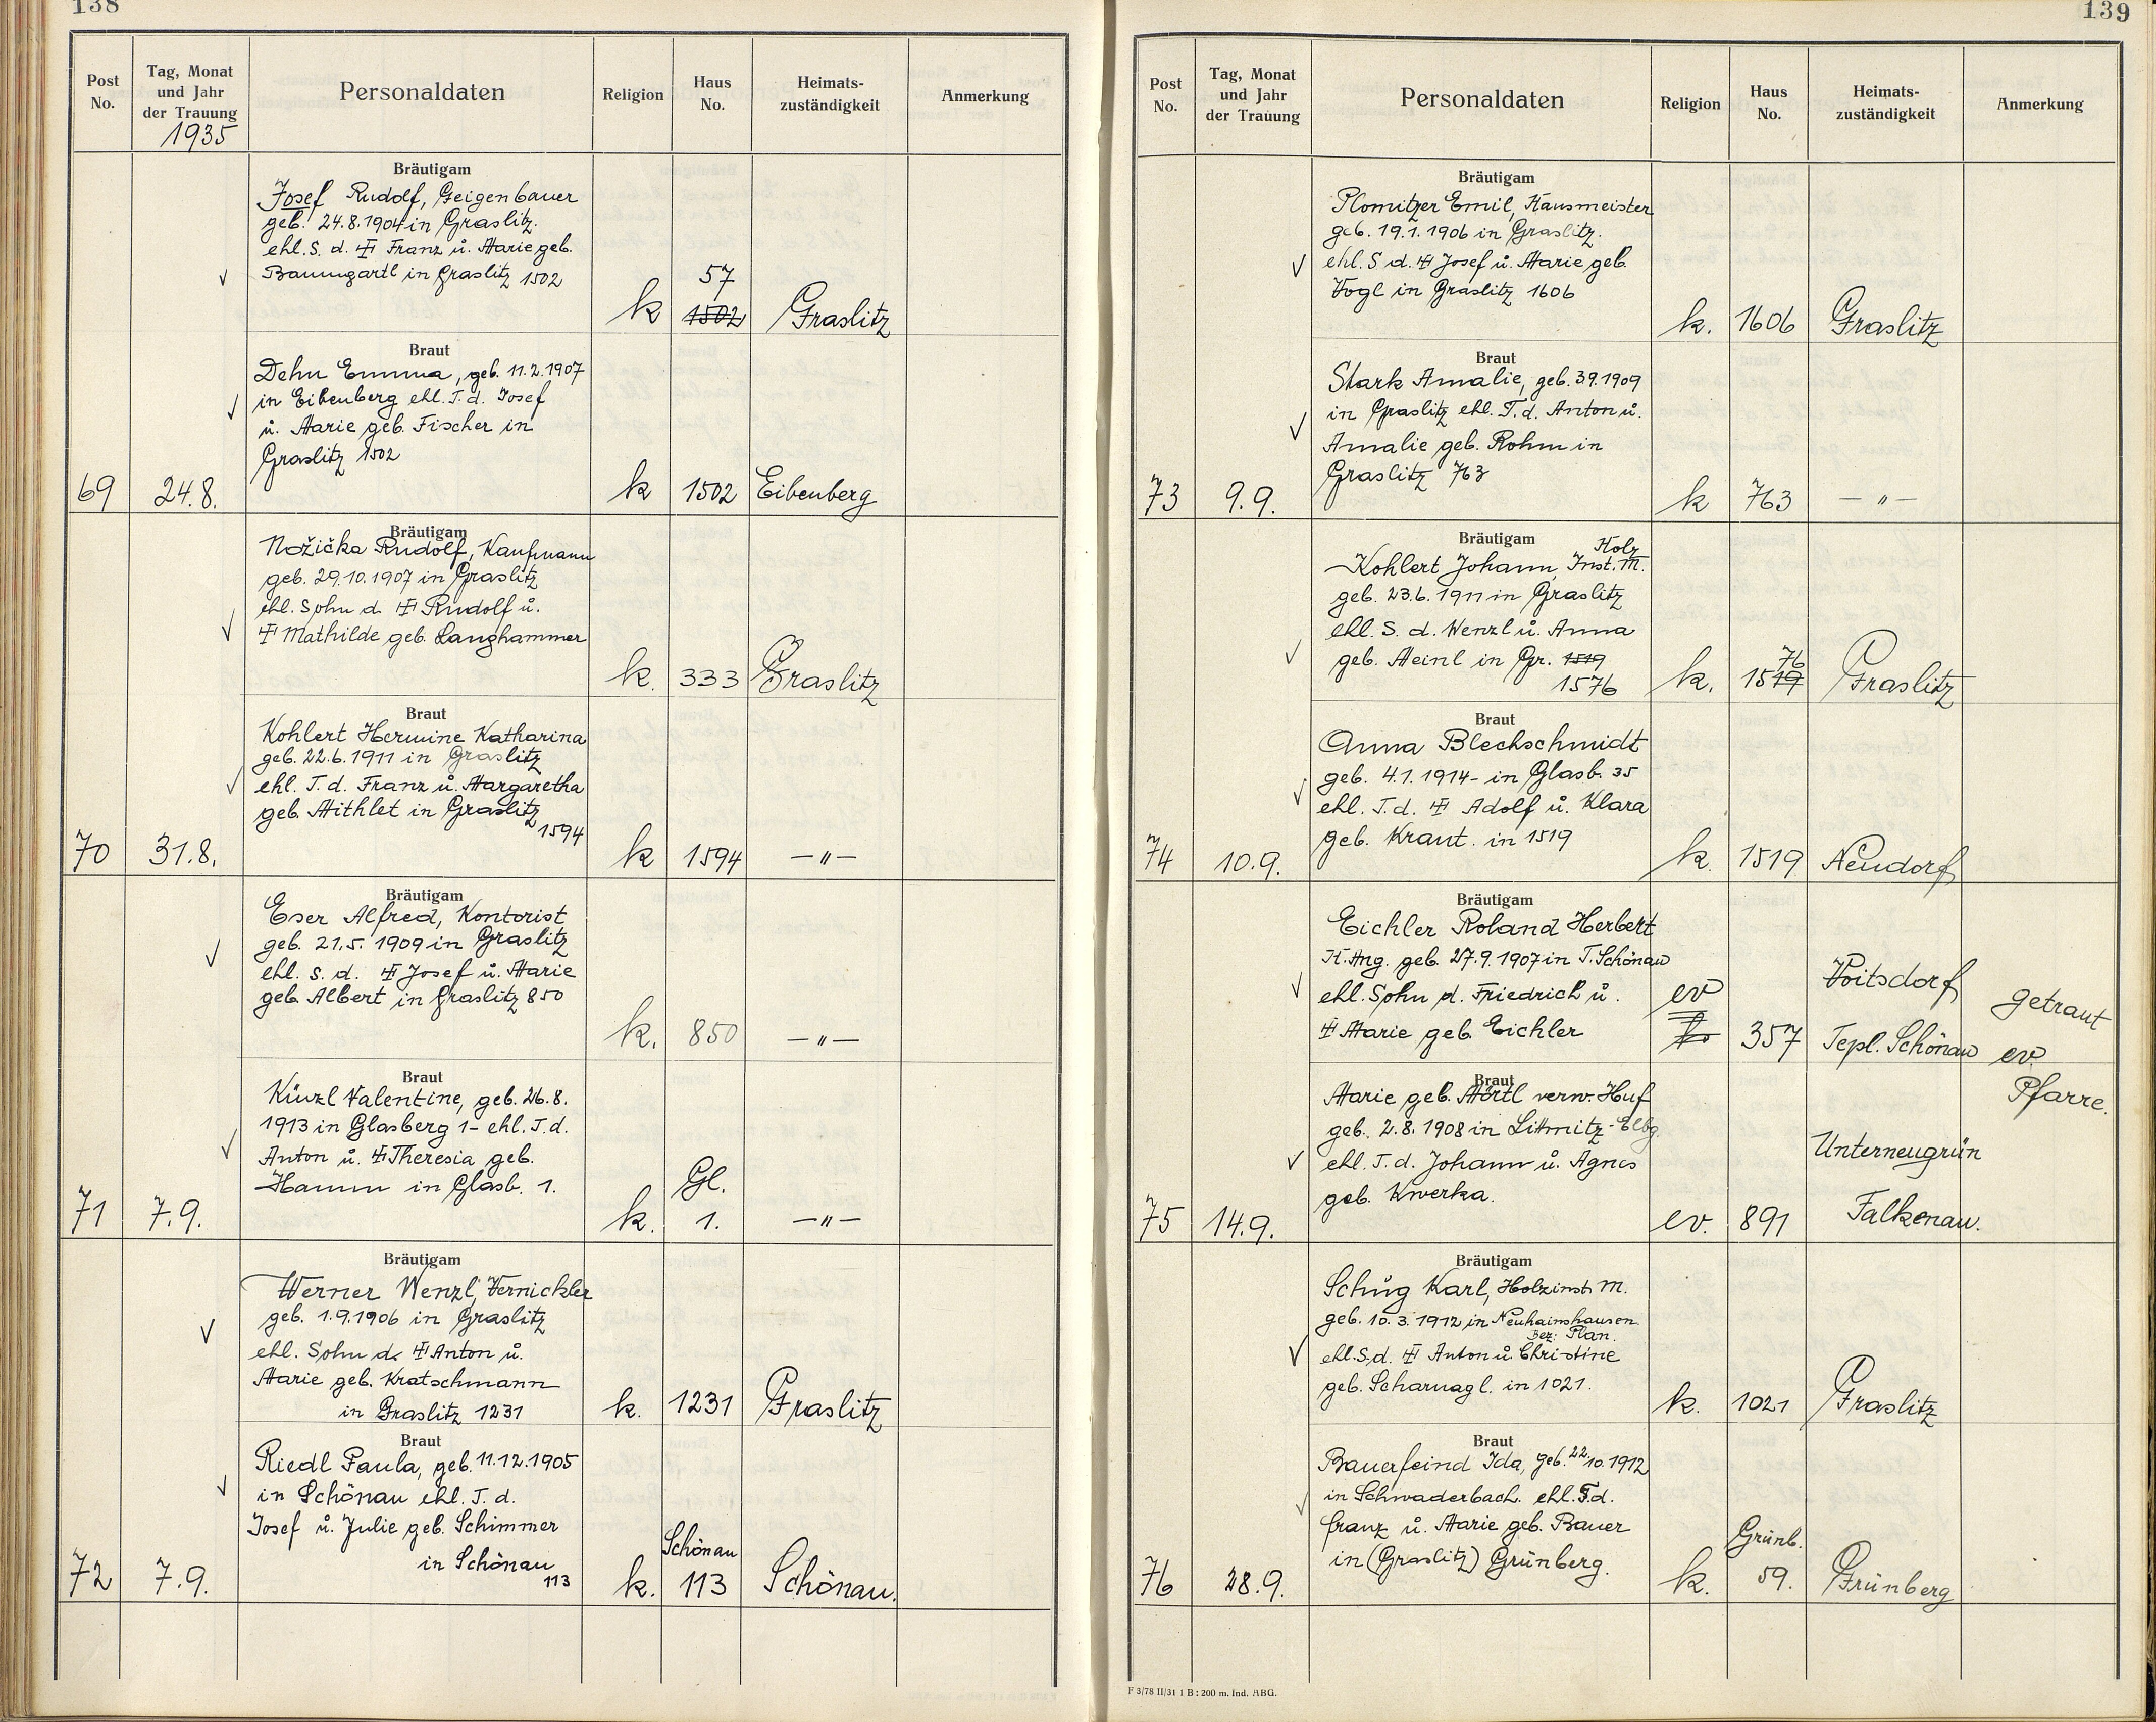 138
Post No.
Tag, Monat und Jahr der Trauung
1935
Personaldaten
Religion
Haus No.
Heimats-zuständigkeit
Anmerkung
Bräutigam
Josef Rudolf, Geigenbauer
geb. 24.8.1904 in Graslitz.
ehl. S. d. ‡ Franz u. Marie geb.
Baumgartl in Graslitz 1502
k
57
1502
Graslitz
Braut
Dehn Emma, geb. 11.2.1907
in Eibenberg ehl. T. d. Josef
u. Marie geb. Fischer in
Graslitz 1502
69 24.8. k 1502 Eibenberg
Bräutigam
Nožička Rudolf, Kaufmann
geb. 29.10.1907 in Graslitz
ehl. Sohn d. ‡ Rudolf u.
‡ Mathilde geb. Langhammer
k. 333 Graslitz
Braut
Kohlert Hermine Katharina
geb. 22.6.1911 in Graslitz
ehl. T. d. Franz u. Margaretha
geb. Mithlet in Graslitz
1594
70 31.8. k 1594 —〃—
Bräutigam
Eser Alfred, Kontorist
geb. 21.5. 1909 in Graslitz
ehl. S. d. ‡ Josef u. Marie
geb. Albert in Graslitz 850
k. 850 —〃—
Braut
Künzl Valentine, geb. 26.8.
1913 in Glasberg 1- ehl. T. d.
Anton u. ‡ Theresia geb.
Hamm in Glasb. 1.
Gl.
71 7.9. k. 1. —〃—
Bräutigam
Werner Wenzl, Vernickler
geb. 1.9.1906 in Graslitz
ehl. Sohn d. ‡ Anton u.
Marie geb. Kratschmann
in Graslitz 1231
k. 1231 Graslitz
Braut
Riedl Paula, geb. 11.12.1905
in Schönau ehl. T. d.
Josef u. Julie geb. Schimmer
in Schönau
113
Schönau
72 7.9. k. 113 Schönau.
139
Post No.
Tag, Monat und Jahr der Trauung
Personaldaten
Religion
Haus No.
Heimats-zuständigkeit
Anmerkung
Bräutigam
Plomitzer Emil, Hausmeister
geb. 19.1.1906 in Graslitz.
ehl. S d. ‡ Josef u. Marie geb.
Vogl in Graslitz 1606
k. 1606 Graslitz
Braut
Stark Amalie, geb. 3.9.1909
in Graslitz ehl. T. d. Anton u.
Amalie geb. Rohm in
Graslitz 763
73 9.9. k 763 —〃—
Bräutigam
Holz
Kohlert Johann, Inst. M.
geb. 23.6.1911 in Graslitz
ehl. S. d. Wenzl u. Anna
geb. Meinl in Gr. 1519
1576
76
k. 1519 Graslitz
Braut
Anna Blechschmidt
geb. 4.1.1914- in Glasb. 35
ehl. T. d. ‡ Adolf u. Klara
geb. Kraut. in 1519
74 10.9. k. 1519 Neudorf
Bräutigam
Eichler Roland Herbert
K. Ang. geb. 27.9.1907 in T. Schönau
ehl. Sohn d. Friedrich u.
‡ Marie geb. Eichler
ev
k
357
Voitsdorf
Tepl. Schönau
getraut
ev.
Pfarre.
Braut
Marie geb. Mörtl verw. Huf
geb. 2.8.1908 in Littmitz-Elbg.
ehl. T. d. Johann u. Agnes
geb. Kwerka.
Unterneugrün
75 14.9. ev. 891 Falkenau.
Bräutigam
Schug Karl, Holzinst. M.
geb. 10.3.1912 in Neuhainshausen
Bez: Plan.
ehl. S. d. ‡ Anton u. Christine
geb. Scharnagl. in 1021.
k. 1021 Graslitz
Braut
Bauerfeind Ida, geb. 22/10.1912
in Schwaderbach. ehl. T. d.
Franz u. Marie geb. Bauer
in (Graslitz) Grünberg.
Grünb.
76 28.9. k. 59. Grünberg
F 3/78 II/31 1 B : 200 m. Ind. ABG.